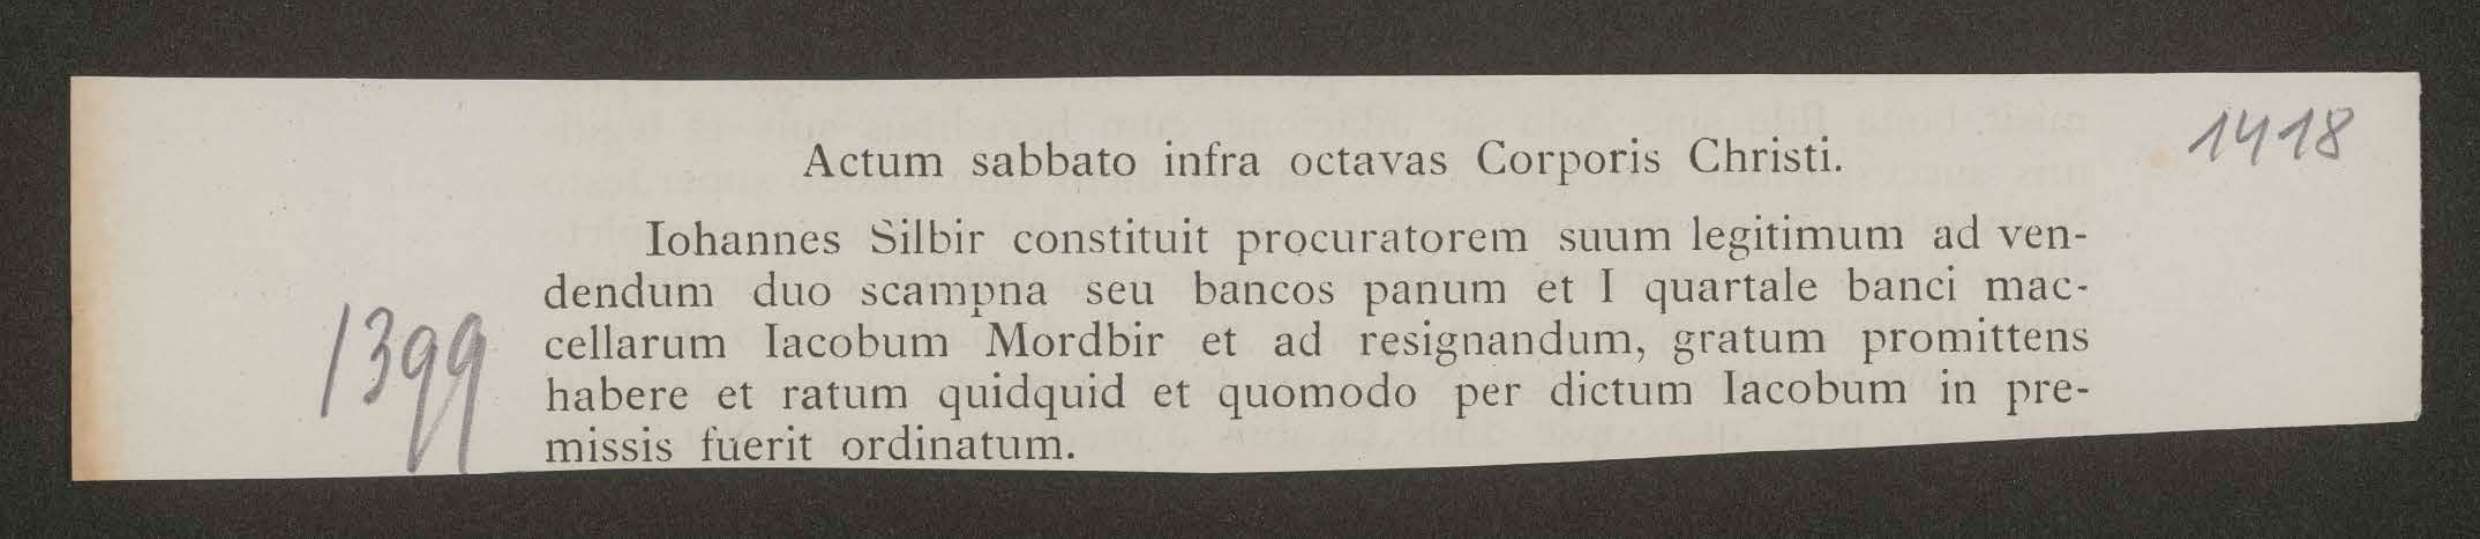 1418
Actum sabbato infra octavas Corporis Christi.
Iohannes Silbir constituit procuratorem suum legitimum ad ven-
dendum duo scampna seu bancos panum et I quartale banci mac-
cellarum Iacobum Mordbir et ad resignandum, gratum promittens
1399
habere et ratum quidquid et quomodo per dictum Iacobum in pre-
missis fuerit ordinatum.